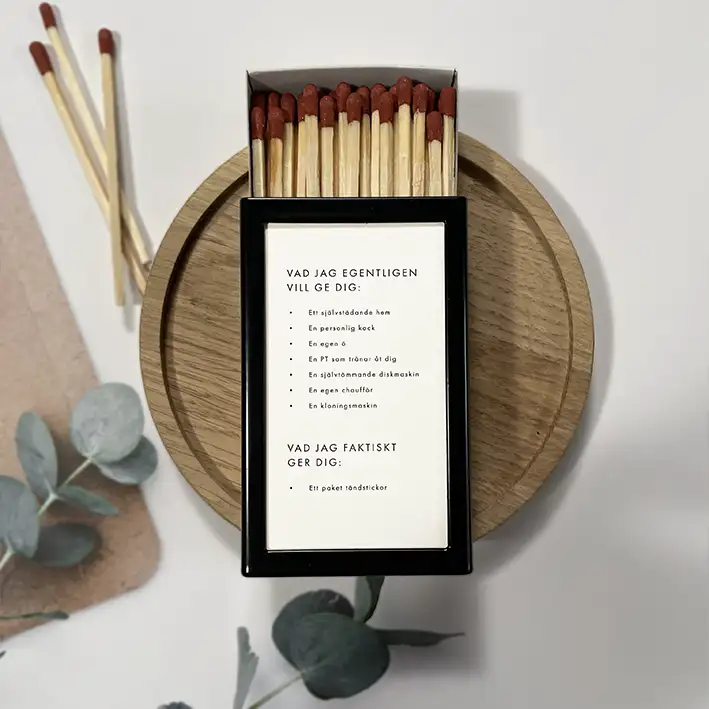 VAD JAG EGENTLIGEN
VILL GE DIG:
• Ett självstädande hem
• En personlig kock
• En egen ö
• En PT som tränar åt dig
• En självtömmande diskmaskin
• En egen chaufför
• En kloningsmaskin
VAD JAG FAKTISKT
GER DIG:
• Ett paket tändstickor